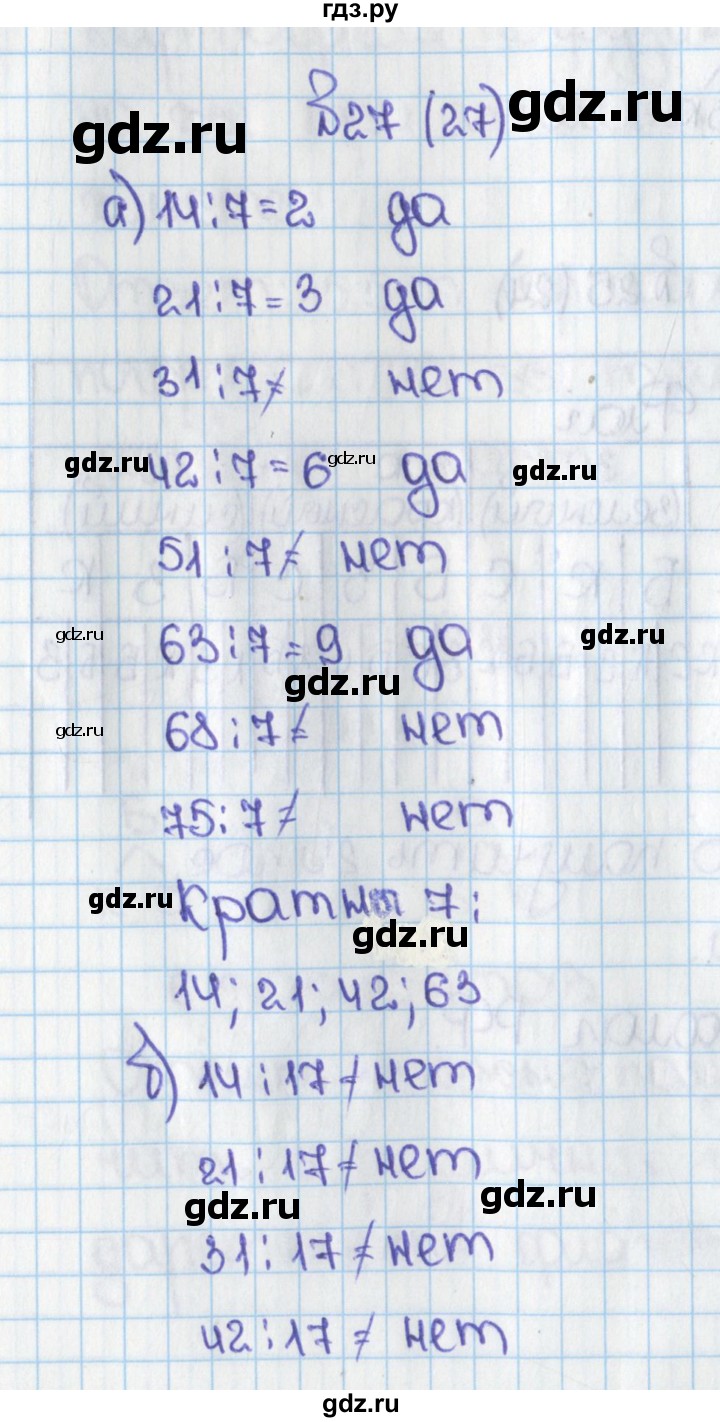 гдз.ру
№27 (27) gdz.ru
gdz.ru
а) 14:7=2 да
21:7=3 да
31:7≠ нет
gdz.ru 42:7=6 gdz.ru да gdz.ru
51:7≠ нет
gdz.ru 63:7=9 да gdz.ru
gdz.ru
gdz.ru 68:7≠ нет
75:7≠ нет
gdz.ru Кратны 7:
gdz.ru
14; 21; 42; 63
б) 14:17≠ нет
21:17≠ нет
gdz.ru gdz.ru
31:17≠ нет
42:17≠ нет
gdz.ru